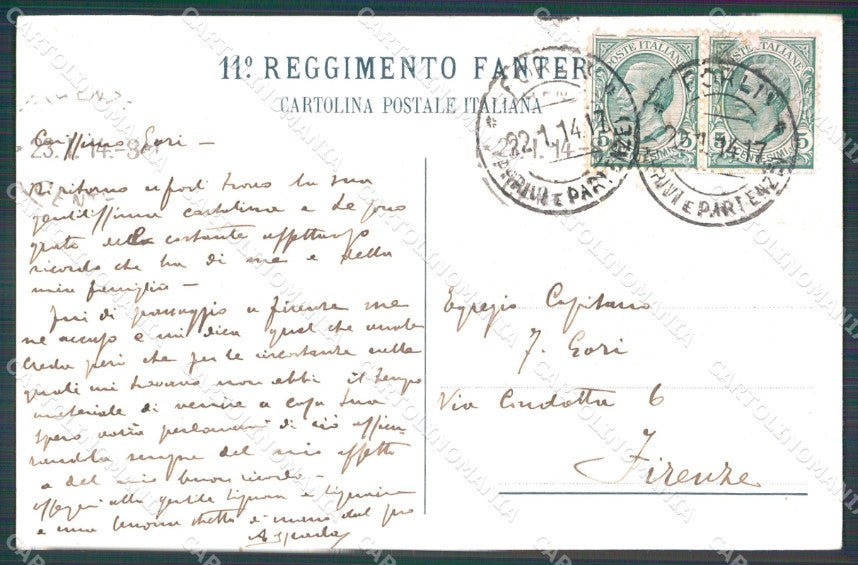 11º REGGIMENTO FANTER
CARTOLINA POSTALE ITALIANA
POSTE ITALIANE
5 5
POSTE ITALIANE
5 5
FORLI
22.1.14.17
ARRIVI E PARTENZE
FORLI
22.1.14.17
ARRIVI E PARTENZE
23.1.14.-8
Carissimo Gori -
Di ritorno a Forlì trovo la sua
gentilissima cartolina e Le sono
grato della costante affettuoso
ricordo che ha di me e della
mia famiglia -
Fui di passaggio a Firenze me
ne accuso e mi dica quel che vuole
Creda però che per le circostanze nelle
quali mi trovavo non ebbi il tempo
materiale di venire a casa sua
Spero vorrà perdonarmi di ciò
sempre del mio affetto
e del mio buon ricordo -
alla gentile Signora e Signorina
e una stretta di mano dal suo
Egregio Capitano
J. Gori
Via Condotta 6
Firenze
CARTOLINOMANIA